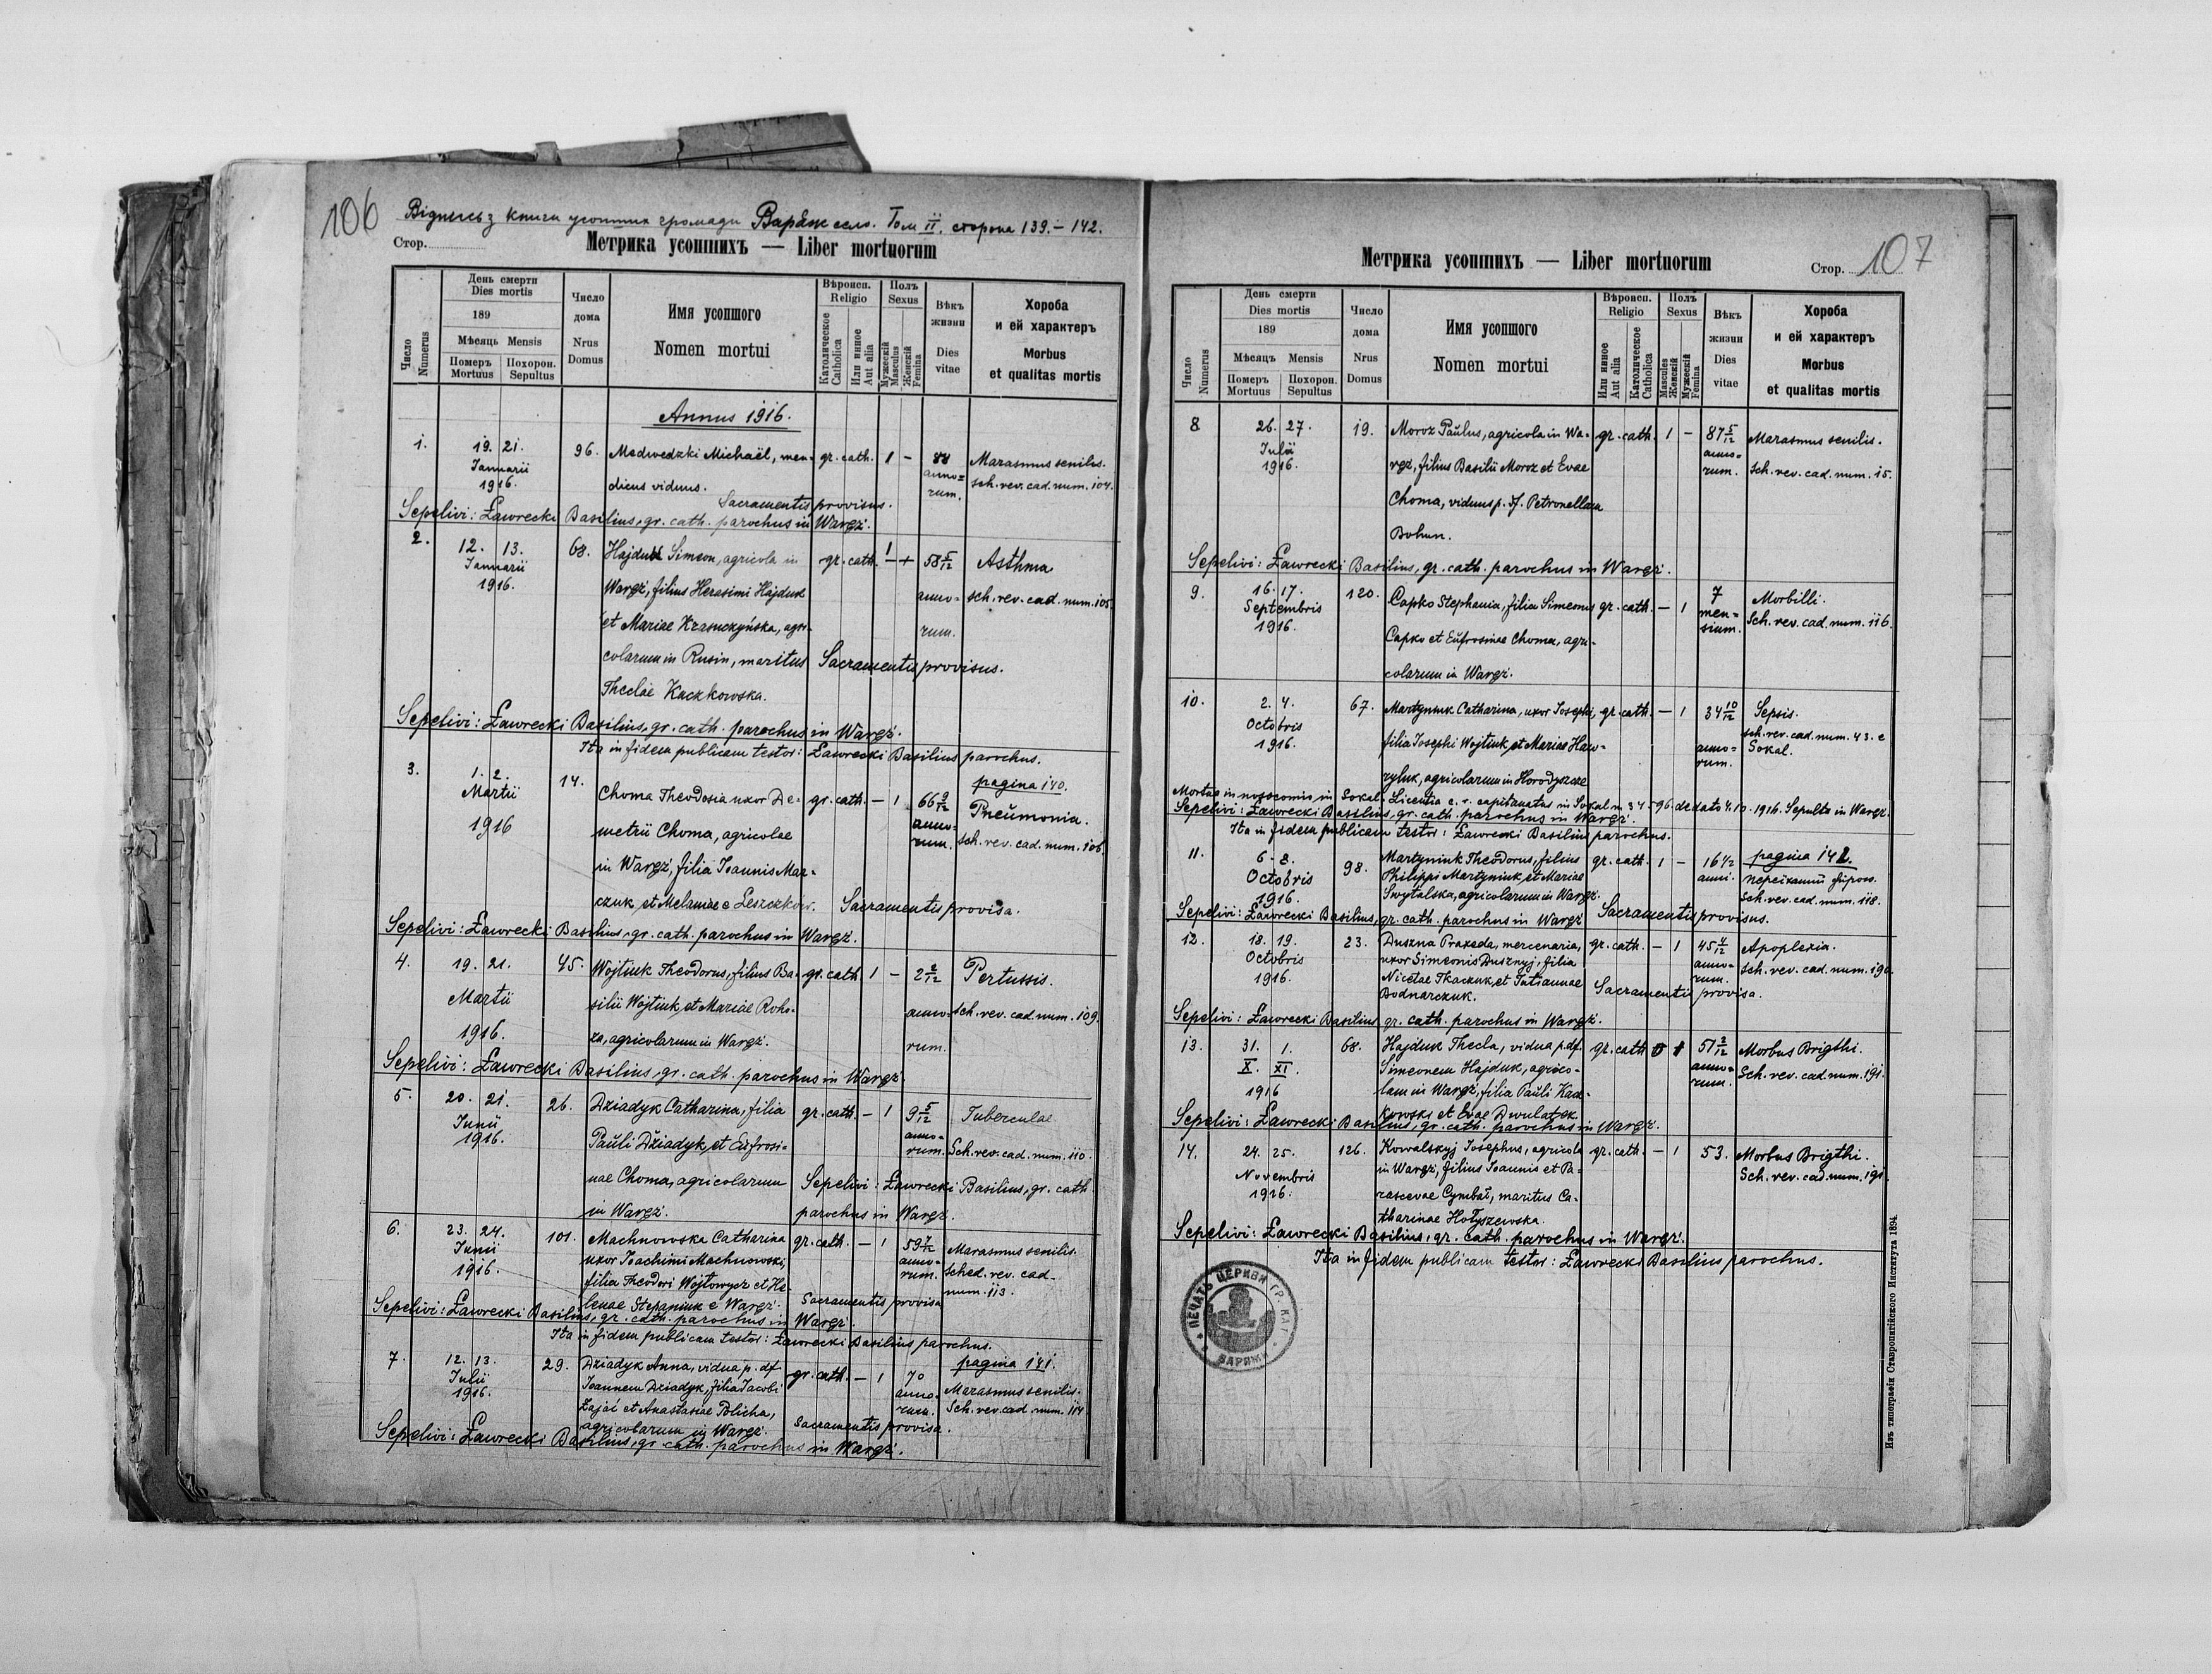 106
Відпись з книги усопших громади Варяж село. Том II. сторона 139.–142.
Стор.
Метрика усопшихъ — Liber mortuorum
Число Numerus
День смерти Dies mortis
189
Мѣсяць Mensis
Померъ Mortuus
Похорон. Sepultus
Число дома Nrus Domus
Имя усопшого Nomen mortui
Вѣроисп. Religio
Католическое Catholica
Или инное Aut alia
Полъ Sexus
Мужескій Masculus
Женскій Femina
Вѣкъ жизни Dies vitae
Хороба и ей характеръ Morbus et qualitas mortis
Annus 1916.
1. 19. 21. 96. Medwedzki Michaël, men- gr. cath. 1 – 88 Marasmus senilis.
Januarii anno= sch. rev. cad. num. 104.
1916. dicus viduus. rum.
Sacramentis provisus.
Sepelivi: Ławrecki Basilius, gr. cath. parochus in Wargż.
2. 12. 13. 68. Hajduk Simeon, agricola in gr. cath. 1 – + 58 5/12 Asthma
Januarii
1916. Wargż, filius Herasimi Hajduk anno= sch. rev. cad. num. 105.
et Mariae Krasuczyńska, agri- rum.
colarum in Rusin, maritus Sacramentis provisus.
Theclae Kaczkowska.
Sepelivi: Ławrecki Basilius, gr. cath. parochus in Wargż.
Ita in fidem publicam testor: Ławrecki Basilius parochus.
pagina 140.
3. 1. 2. 14. Choma Theodosia uxor De- gr. cath. – 1 66 9/12 Pneumonia.
Martii anno=
1916 metrii Choma, agricolae rum. sch. rev. cad. num. 106.
in Wargż, filia Ioannis Mar-
czuk et Melaniae e Leszczkow. Sacramentis provisa.
Sepelivi: Ławrecki Basilius, gr. cath. parochus in Wargż.
4. 19. 21. 45. Wojtiuk Theodorus, filius Ba- gr. cath. 1 – 2 2/12 Pertussis.
Martii silii Wojtiuk et Mariae Roho- anno= sch. rev. cad. num. 109.
1916. za, agricolarum in Wargż. rum.
Sepelivi: Ławrecki Basilius, gr. cath. parochus in Wargż.
5. 20. 21. 26. Dziadyk Catharina, filia gr. cath. – 1 9 5/12 Tuberculae
Junii anno=
1916. Pauli Dziadyk et Eufrosi- rum. Sch. rev. cad. num. 110.
nae Choma, agricolarum Sepelivi: Ławrecki Basilius, gr. cath.
in Wargż. parochus in Wargż.
6. 23. 24. 101. Machnowska Catharina gr. cath. – 1 59 7/12 Marasmus senilis.
Junii uxor Ioachimi Machnowski, anno= Sched. rev. cad.
1916. filia Theodori Wojtowycz et He- rum. num. 113.
lenae Stepaniuk e Wargż. Sacramentis provisa
Sepelivi: Ławrecki Basilius, gr. cath. parochus in Wargż.
Ita in fidem publicam testor: Ławrecki Basilius parochus.
pagina 141.
7. 12. 13. 29. Dziadyk Anna, vidua p. df. gr. cath. – 1 70 Marasmus senilis.
Julii Ioannem Dziadyk, filia Jacobi anno=
1916. Zajai et Anastasiae Policha, rum. Sch. rev. cad. num. 114.
agricolarum in Wargż. Sacramentis provisa.
Sepelivi: Ławrecki Basilius, gr. cath. parochus in Wargż.
Метрика усопшихъ — Liber mortuorum
Стор. 107
Число Numerus
День смерти Dies mortis
189
Мѣсяцъ Mensis
Померъ Mortuus
Похорон. Sepultus
Число дома Nrus Domus
Имя усопшого Nomen mortui
Вѣроисп. Religio
Или инное Aut alia
Католическое Catholica
Полъ Sexus
Mascules Женскій
Мужескій Femina
Вѣкъ жизни Dies vitae
Хороба и ей характеръ Morbus et qualitas mortis
8 26. 27. 19. Moroz Paulus, agricola in Wa- gr. cath. 1 – 87 5/12 Marasmus senilis.
Julii anno=
1916. rgż, filius Basilii Moroz et Evae rum. Sch. rev. cad. num. 15.
Choma, viduus p. df. Petronellam
Bohun.
Sepelivi: Ławrecki Basilius, gr. cath. parochus in Wargż.
9. 16. 17. 120. Capko Stephania, filia Simeonis gr. cath. – 1 7 Morbilli.
Septembris men= Sch. rev. cad. num. 116.
1916. Capko et Eufrosinae Choma, agri- sium.
colarum in Wargż.
10. 2. 4. 67. Martyniuk Catharina, uxor Iosephi, gr. cath. – 1 34 10/12 Sepsis.
Octobris sch. rev. cad. num. 43. e
1916. filia Josephi Wojtiuk et Mariae Haw- anno= Sokal.
ryluk, agricolarum in Horodyszcze rum.
Mortua in nosocomio in Sokal. Licentia c. r. capitanatus in Sokal n. 34–96. de dato 4.10.1916. Sepulta in Wargż.
Sepelivi: Ławrecki Basilius, gr. cath. parochus in Wargż.
Ita in fidem publicam testor: Ławrecki Basilius parochus.
pagina 142.
11. 6. 8. 98. Martyniuk Theodorus, filius gr. cath. 1 – 16 1/2
Octobris Philippi Martyniuk et Mariae anni. переїханий
1916. Swytalska, agricolarum in Wargż. Sch. rev. cad. num. 118.
Sacramentis provisus.
Sepelivi: Ławrecki Basilius, gr. cath. parochus in Wargż
12. 18. 19. 23. Duszna Praxeda, mercenaria, gr. cath. – 1 45 4/12 Apoplexia.
Octobris uxor Simeonis Dusznyj, filia anno= Sch. rev. cad. num. 190.
1916. Nicetae Tkaczuk et Tatiannae rum.
Bodnarczuk. Sacramentis provisa.
Sepelivi: Ławrecki Basilius gr. cath. parochus in Wargż.
13. 31. 1. 68. Hajduk Thecla, vidua p. df. gr. cath. 1 51 2/12 Morbus Brigthi.
X. XI. Simeonem Hajduk, agrico- anno= Sch. rev. cad. num. 191.
1916 lam in Wargż, filia Pauli Kacz- rum.
kowski et Evae Dwulatek
Sepelivi: Ławrecki Basilius, gr. cath. parochus in Wargż.
14. 24. 25. 126. Kowalskyj Iosephus, agricola gr. cath. – 1 53. Morbus Brigthi.
Novembris in Wargż, filius Ioannis et Pa- Sch. rev. cad. num. 191.
1916. rascevae Cymbał, maritus Ca-
tharinae Hołyszewska.
Sepelivi: Ławrecki Basilius, gr. cath. parochus in Wargż.
Ita in fidem publicam testor: Ławrecki Basilius parochus.
ПЕЧАТЬ ЦЕРКВИ ГР. КАТ. ВАРЯЖИ
Изъ типографіи Ставропигійского Института 1894